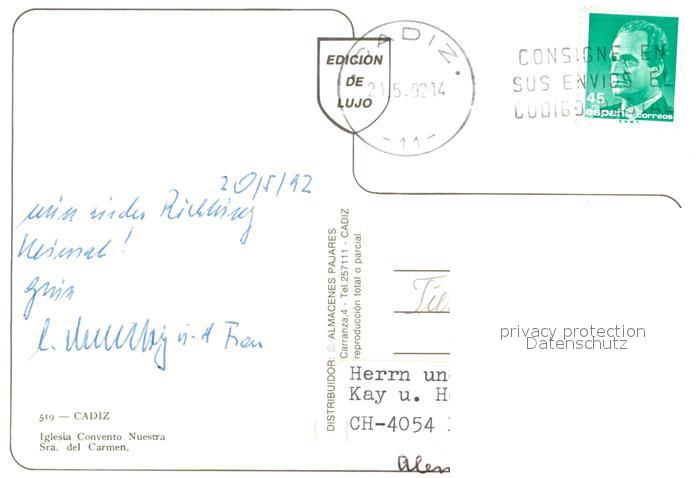 EDICIÓN
DE
LUJO
CADIZ.
21.5.92 14
-11-
CONSIGNE EN
SUS ENVIOS EL
CODIGO POSTAL
45
españa correos
20/5/92
in der Richtung
Heimat!
Gruss
u. Frau
519 — CADIZ
Iglesia Convento Nuestra
Sra. del Carmen,
DISTRIBUIDOR: © ALMACENES PAJARES
Carranza,4 - Tel.257111 - CADIZ
reproducción total o parcial.
Herrn un
Kay u. H
CH-4054
privacy protection
Datenschutz